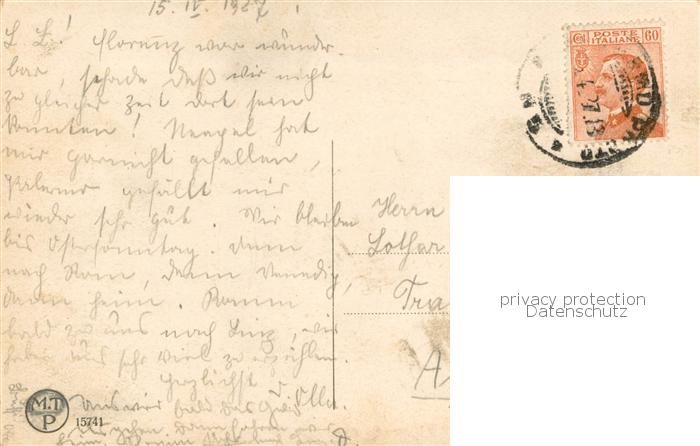 15. IV. 1927.
L L! Florenz war wunder-
bar, schade daß wir nicht
zu gleicher Zeit dort sein
konnten! Neapel hat
mir garnicht gefallen,
Palermo gefällt mir
wieder sehr gut. Wir bleiben
bis Ostersonntag. Dann
nach Rom, dann Venedig,
dann heim. Komm
bald zu uns nach Linz, wir
haben uns sehr viel zu erzählen.
Herzlichst
POSTE
ITALIANE
60
27.13
Herrn
Lothar
Tra
A
privacy protection
Datenschutz
M.T.
P
15741